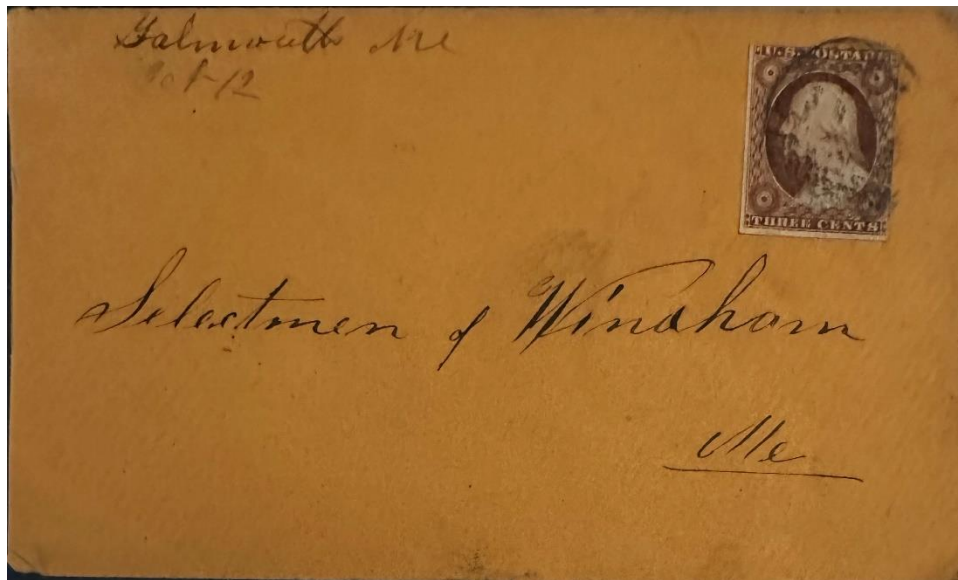 Falmouth Me
Oct 12
U.S. POSTAGE
THREE CENTS
Selectmen of Windham
Me